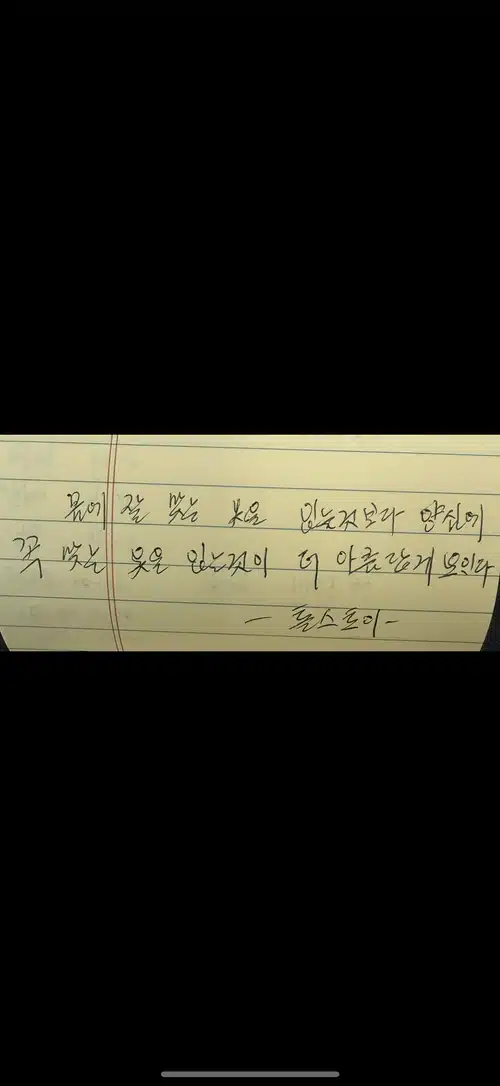 몸에 잘 맞는 옷을 입는것보다 양심에
꼭 맞는 옷을 입는것이 더 아름답게 보인다
- 톨스토이 -